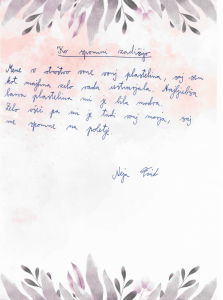 Ko spomini zadišijo
Mene v otroštvo vrne vonj plastelina, saj sem
kot majhna zelo rada ustvarjala. Najljubša
barva plastelina mi je bila modra.
Zelo všeč pa mi je tudi vonj morja, saj
me spomne na poletje.
Neja